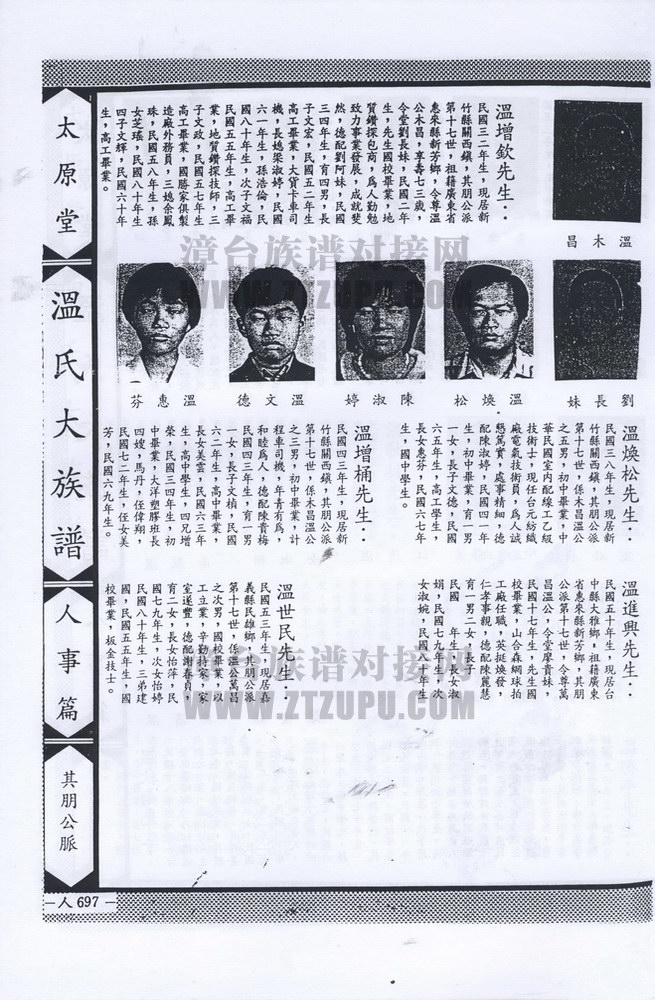 太原堂
溫氏大族譜
人事篇
其朋公脈
—人 697 —
溫木昌
溫增欽先生：
民國三二年生，現居新
竹縣關西鎮，其朋公派
第十七世，祖籍廣東省
惠來縣新芳鄉，令尊溫
公木昌，享壽七三歲，
令堂劉長妹，民國二年
生，先生國校畢業，地
質鑽探包商，為人勤勉
致力事業發展，成就斐
然，德配劉阿妹，民國
三四年生，育四男，長
子文宏，民國五二年生
高工畢業，大貨卡車司
機，長媳梁淑婷，民國
六一年生，孫浩倫，民
國八十年生，次子文福
民國五五年生，高工畢
業，地質鑽探技師，三
子文政，民國五七年生
高工畢業，國勝家俱製
造廠外務員，三媳余鳳
珠，民國五八年生，孫
女芝瑤，民國八十年生
四子文輝，民國六十年
生，高工畢業。
劉長妹
溫煥松
陳淑婷
溫文德
溫惠芬
溫煥松先生：
民國三八年生，現居新
竹縣關西鎮，其朋公派
第十七世，係木昌溫公
之五男，初中畢業，中
華民國室內配線工乙級
技術士，現任台元紡織
廠電氣技術員，為人誠
懇篤實，處事精細，德
配陳淑婷，民國四一年
生，初中畢業，育一男
一女，長子文德，民國
六五年生，高工學生，
長女惠芬，民國六七年
生，國中學生。
溫增桶先生：
民國四三年生，現居新
竹縣關西鎮，其朋公派
第十七世，係木昌溫公
之三男，初中畢業，計
程車司機，年青有為，
和睦為人，德配陳貴梅
民國四三年生，育一男
一女，長子文楨，民國
六二年生，高中畢業，
長女美雲，民國六三年
生，高中學生，四兄增
榮，民國三四年生，初
中畢業，大洋塑膠班長
四嫂，馬丹，任偉翔，
民國七二年生，任女美
芳，民國六九年生。
溫進興先生：
民國五十年生，現居台
中縣大雅鄉，祖籍廣東
省惠來縣新芳鄉，其朋
公派第十七世，令尊萬
昌溫公，令堂廖貴妹，
民國十七年生，先生國
校畢業，山合森網球拍
工廠任職，英挺煥發，
仁孝事親，德配陳麗慧
民國　年生，長女淑
育一男二女，長子
娟，民國七九年生，次
女淑婉，民國八十年生
溫世民先生：
民國五三年生，現居嘉
義縣民雄鄉，其朋公派
第十七世，係溫公萬昌
之次男，國校畢業，以
工立業，辛勤持家，家
室遂豐，德配謝春貞，
育二女，長女怡萍，民
國七九年生，次女怡婷
民國八十年生，三弟建
國，民國五五年生，國
校畢業，板金技士。
漳台族谱对接网
WWW.ZTZUPU.COM
漳台族谱对接网
WWW.ZTZUPU.COM